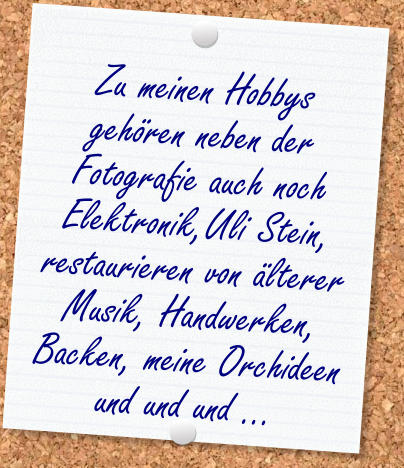 Zu meinen Hobbys
gehören neben der
Fotografie auch noch
Elektronik, Uli Stein,
restaurieren von älterer
Musik, Handwerken,
Backen, meine Orchideen
und und und ...